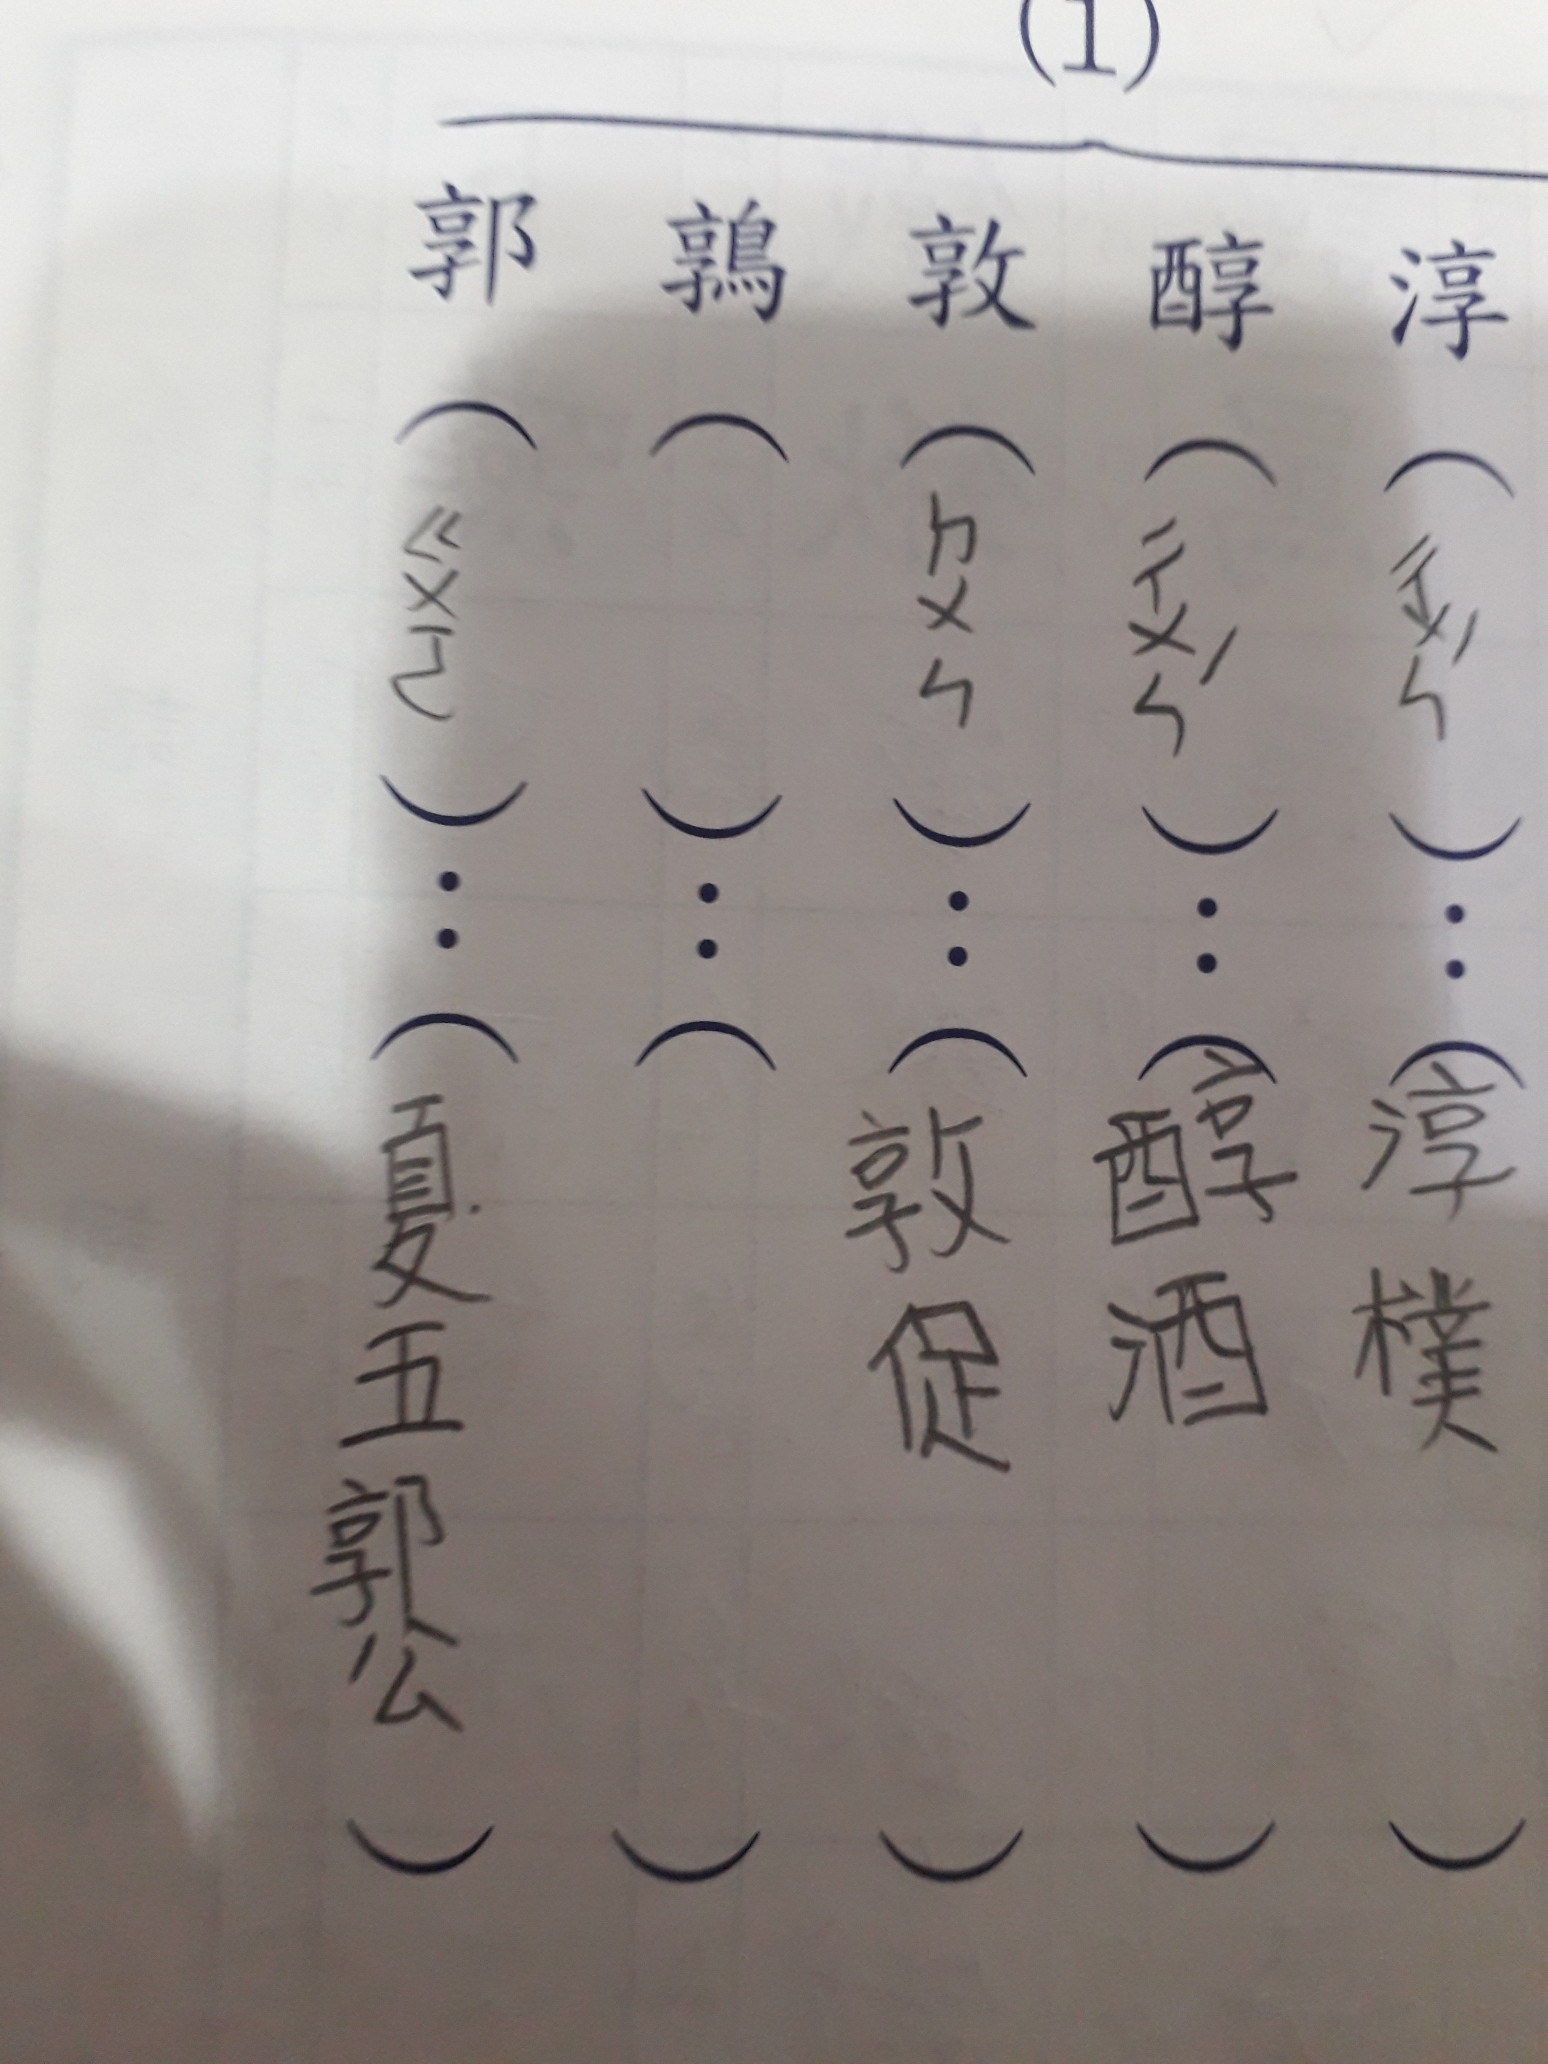 (1)
淳（ㄔㄨㄣˊ）：（淳樸）
醇（ㄔㄨㄣˊ）：（醇酒）
敦（ㄉㄨㄣ）：（敦促）
鶉（）：（）
郭（ㄍㄨㄛ）：（夏五郭公）